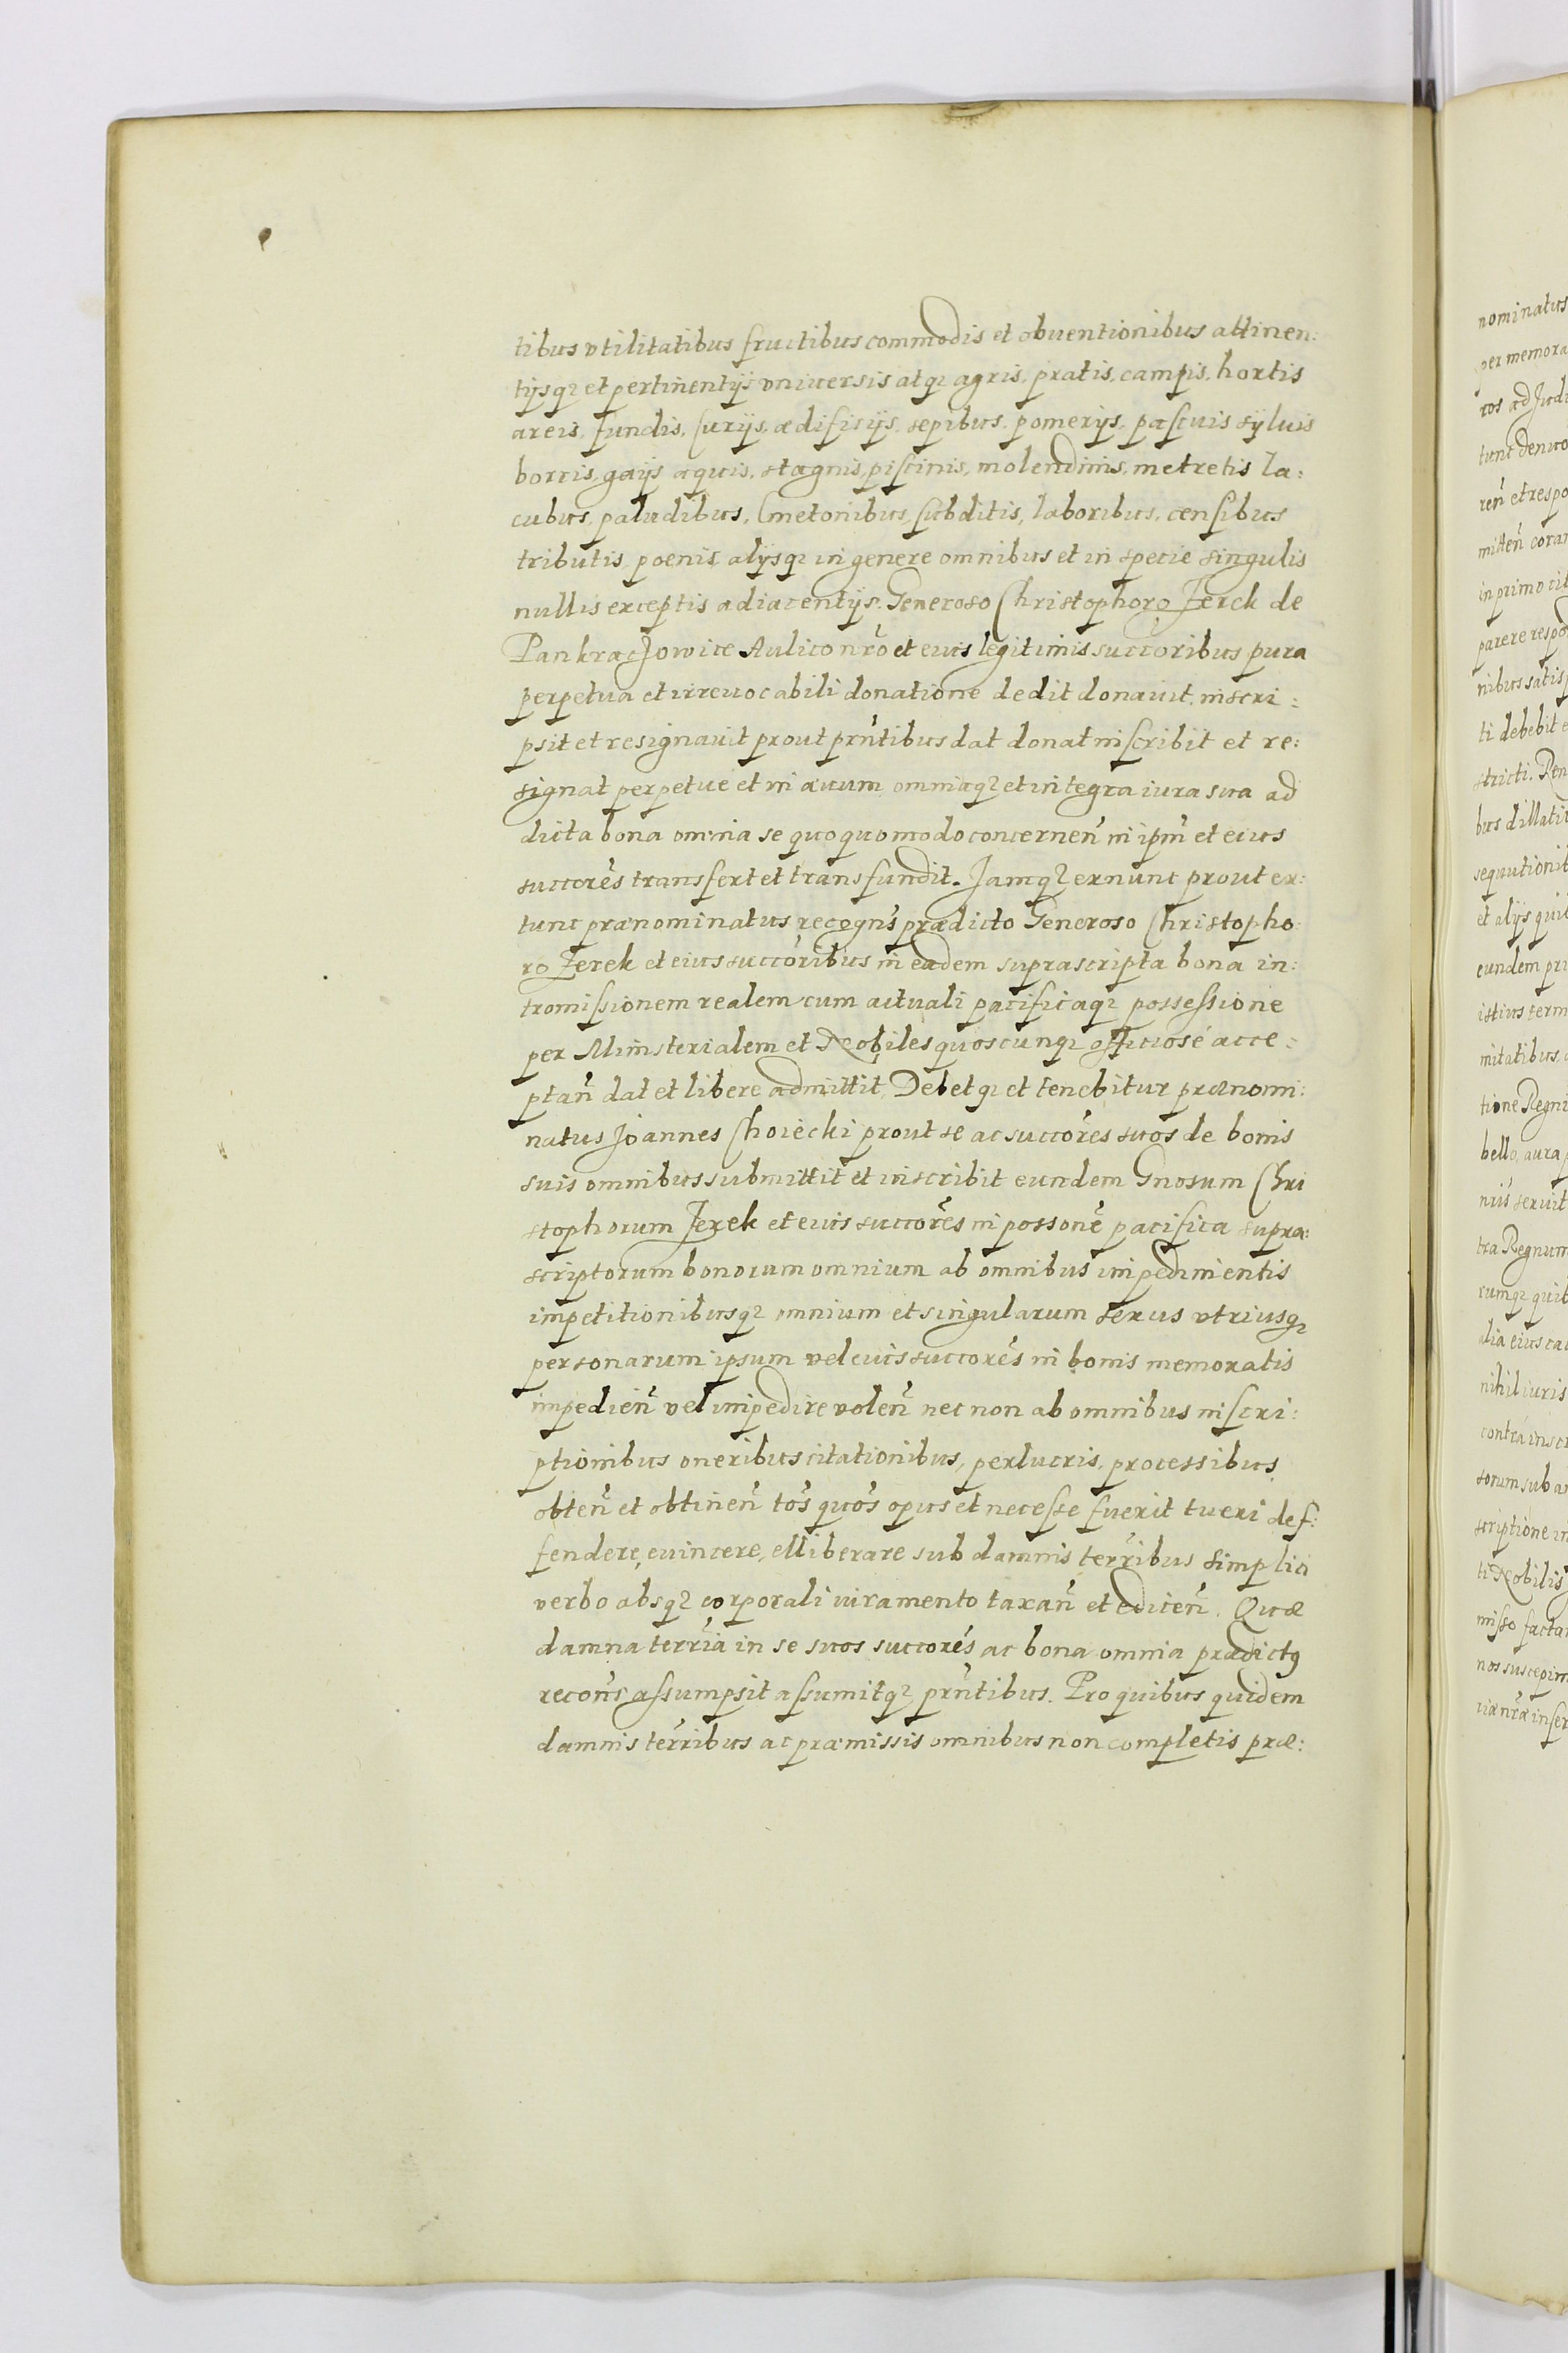 tibus vtilitatibus fructibus commodis et obuentionibus attinen:
tijsq₃ et pertinentijs vniuersis atq₃ agris, pratis, campis, hortis
areis, fundis, Curijs, ædificijs, sepibus, pomerijs, pascuis syluis
borris, gaijs aquis, stagnis, piscinis, molendinis, metretis la:
cubus, paludibus, Cmetonibus, subditis, laboribus, censibus
tributis, poenis, alijsq₃ in genere omnibus et in specie singulis
nullis exceptis adiacentijs. Generoso Christophoro Jerek de
Pankraczowice Aulico nr̃o et eius legitimis succoribus pura
perpetua et irreuocabili donatione dedit donauit inscri:
psit et resignauit prout prñtibus dat donat inscribit et re:
signat perpetue et in æuum omniaq₃ et integra iura sua ad
dicta bona omnia se quoquomodo concerneñ in ipm̃ et eius
succorẽs transfert et transfundit. Jamq₃ exnunc prout ex:
tunc prænominatus recogns̃ prædicto Generoso Christopho:
ro Jerek et eius succoribus in eadem suprascripta bona in:
tromissionem realem cum actuali pacificaq₃ possessione
per Ministerialem et Nobiles quoscunq₃ officiosé acce:
ptañ dat et libere admittit, Debetq₃ et tenebitur prænomi:
natus Joannes Choiecki prout se ac succorẽs suos de bonis
suis omnibus submittit et inscribit eundem Gnosum Chri
stophorum Jerek et eius succorẽs in possonẽ pacifica supra:
scriptorum bonorum omnium ab omnibus impedimentis
impetitionibusq₃ omnium et singularum sexus vtriusq₃
personarum ipsum vel eius succorẽs in bonis memoratis
impedieñ vel impedire voleñ nec non ab omnibus inscri:
ptionibus oneribus citationibus, perlucris, processibus
obteñ et obtineñ tos̃ quos̃ opus et necesse fuerit tueri def:
fendere, euincere, elliberare sub damnis terr̃ibus simplici
verbo absq₃ corporali iuramento taxañ et ediceñ. Quæ
damna terr̃ia in se suos succorẽs ac bona omnia prædictꝯ
recons̃ assumpsit assumitq₃ prñtibus. Pro quibus quidem
damnis terr̃ibus ac præmissis omnibus non completis præ:
nominatus
per memora
ros ad Judi
reñ et respo
mitteñ cora
in primo cit
parere respo
nibus satis
ti debebit e
stricti. Ren
bus dillati
et alijs quib
eundem pri
istius term
mitatibus,
tione Regni
bello, aura
tra Regnum
cumq₃ quib
alia eius ca
nihil iuris
contra inscr
scriptione in
ti Nobilis
misso factam
nos suscepim